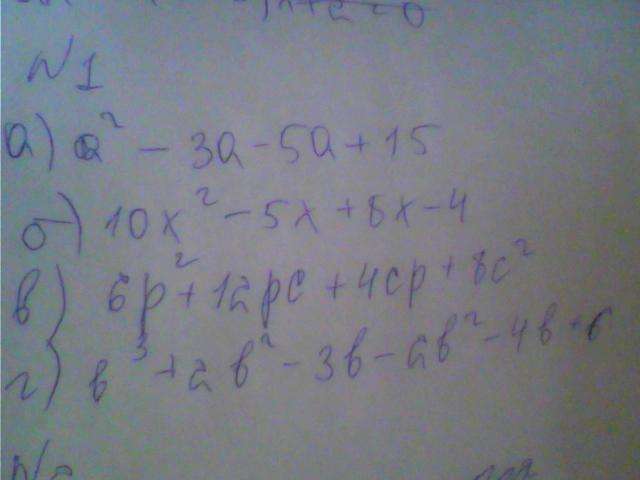 N1
а) a² - 3a - 5a + 15
б) 10x² - 5x + 8x - 4
в) 6p² + 12pc + 4cp + 8c²
г) b³ + ab² - 3b - ab² - 4b + 6